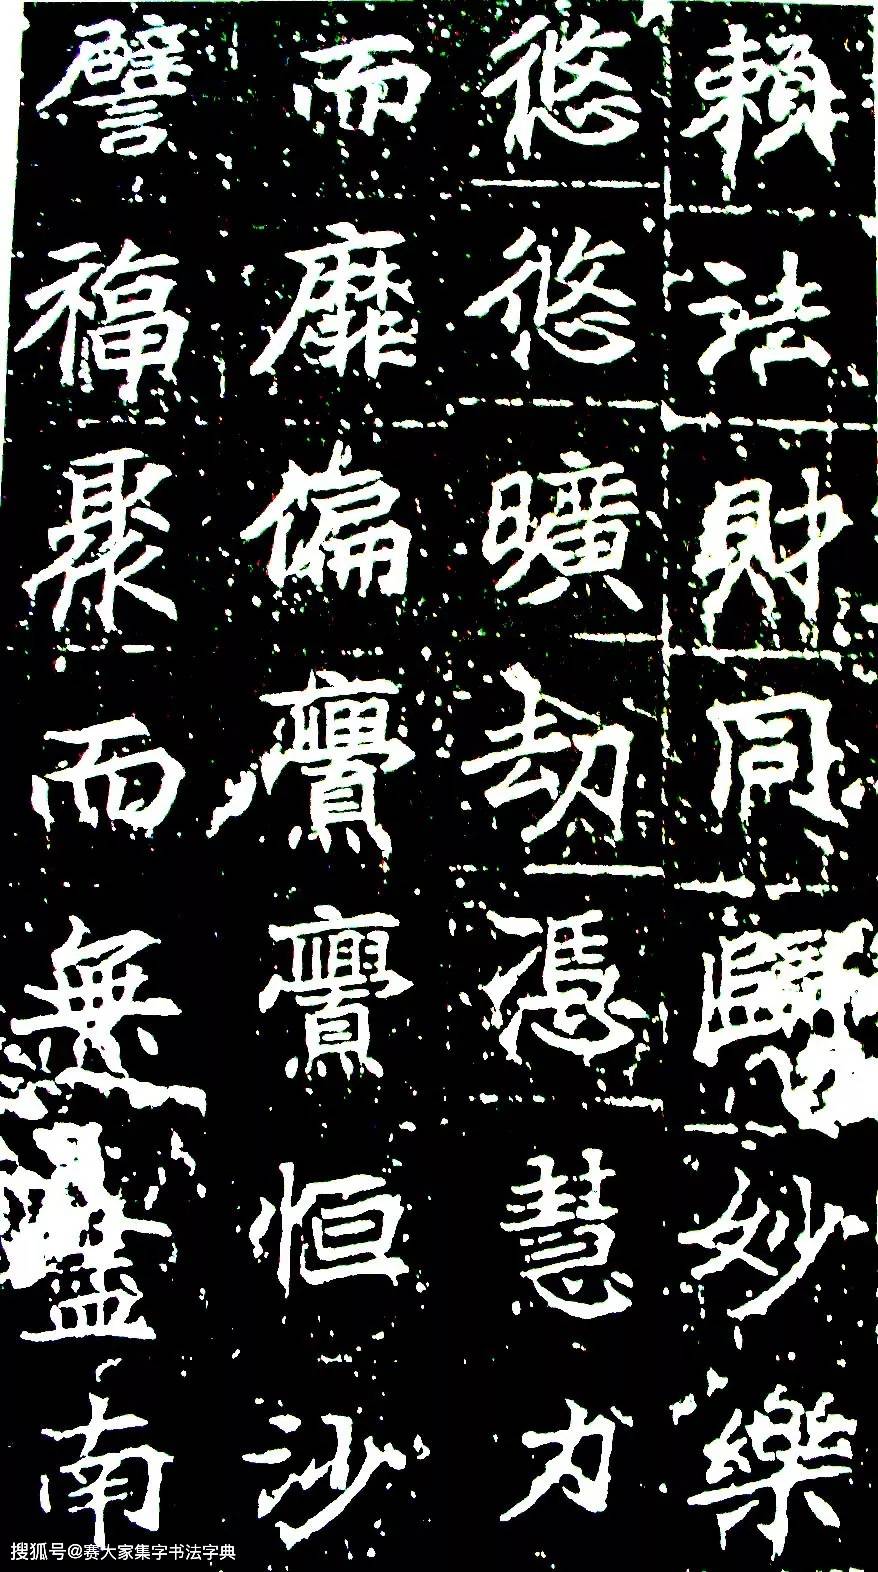 賴法財同歸妙樂
悠悠曠劫憑慧力
而靡偏亹亹恒沙
譬福聚而無盡南
搜狐号@赛大家集字书法字典